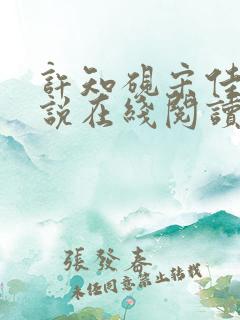 許知硯宋佳
說在綫閱讀
張發春
未经同意禁止转载